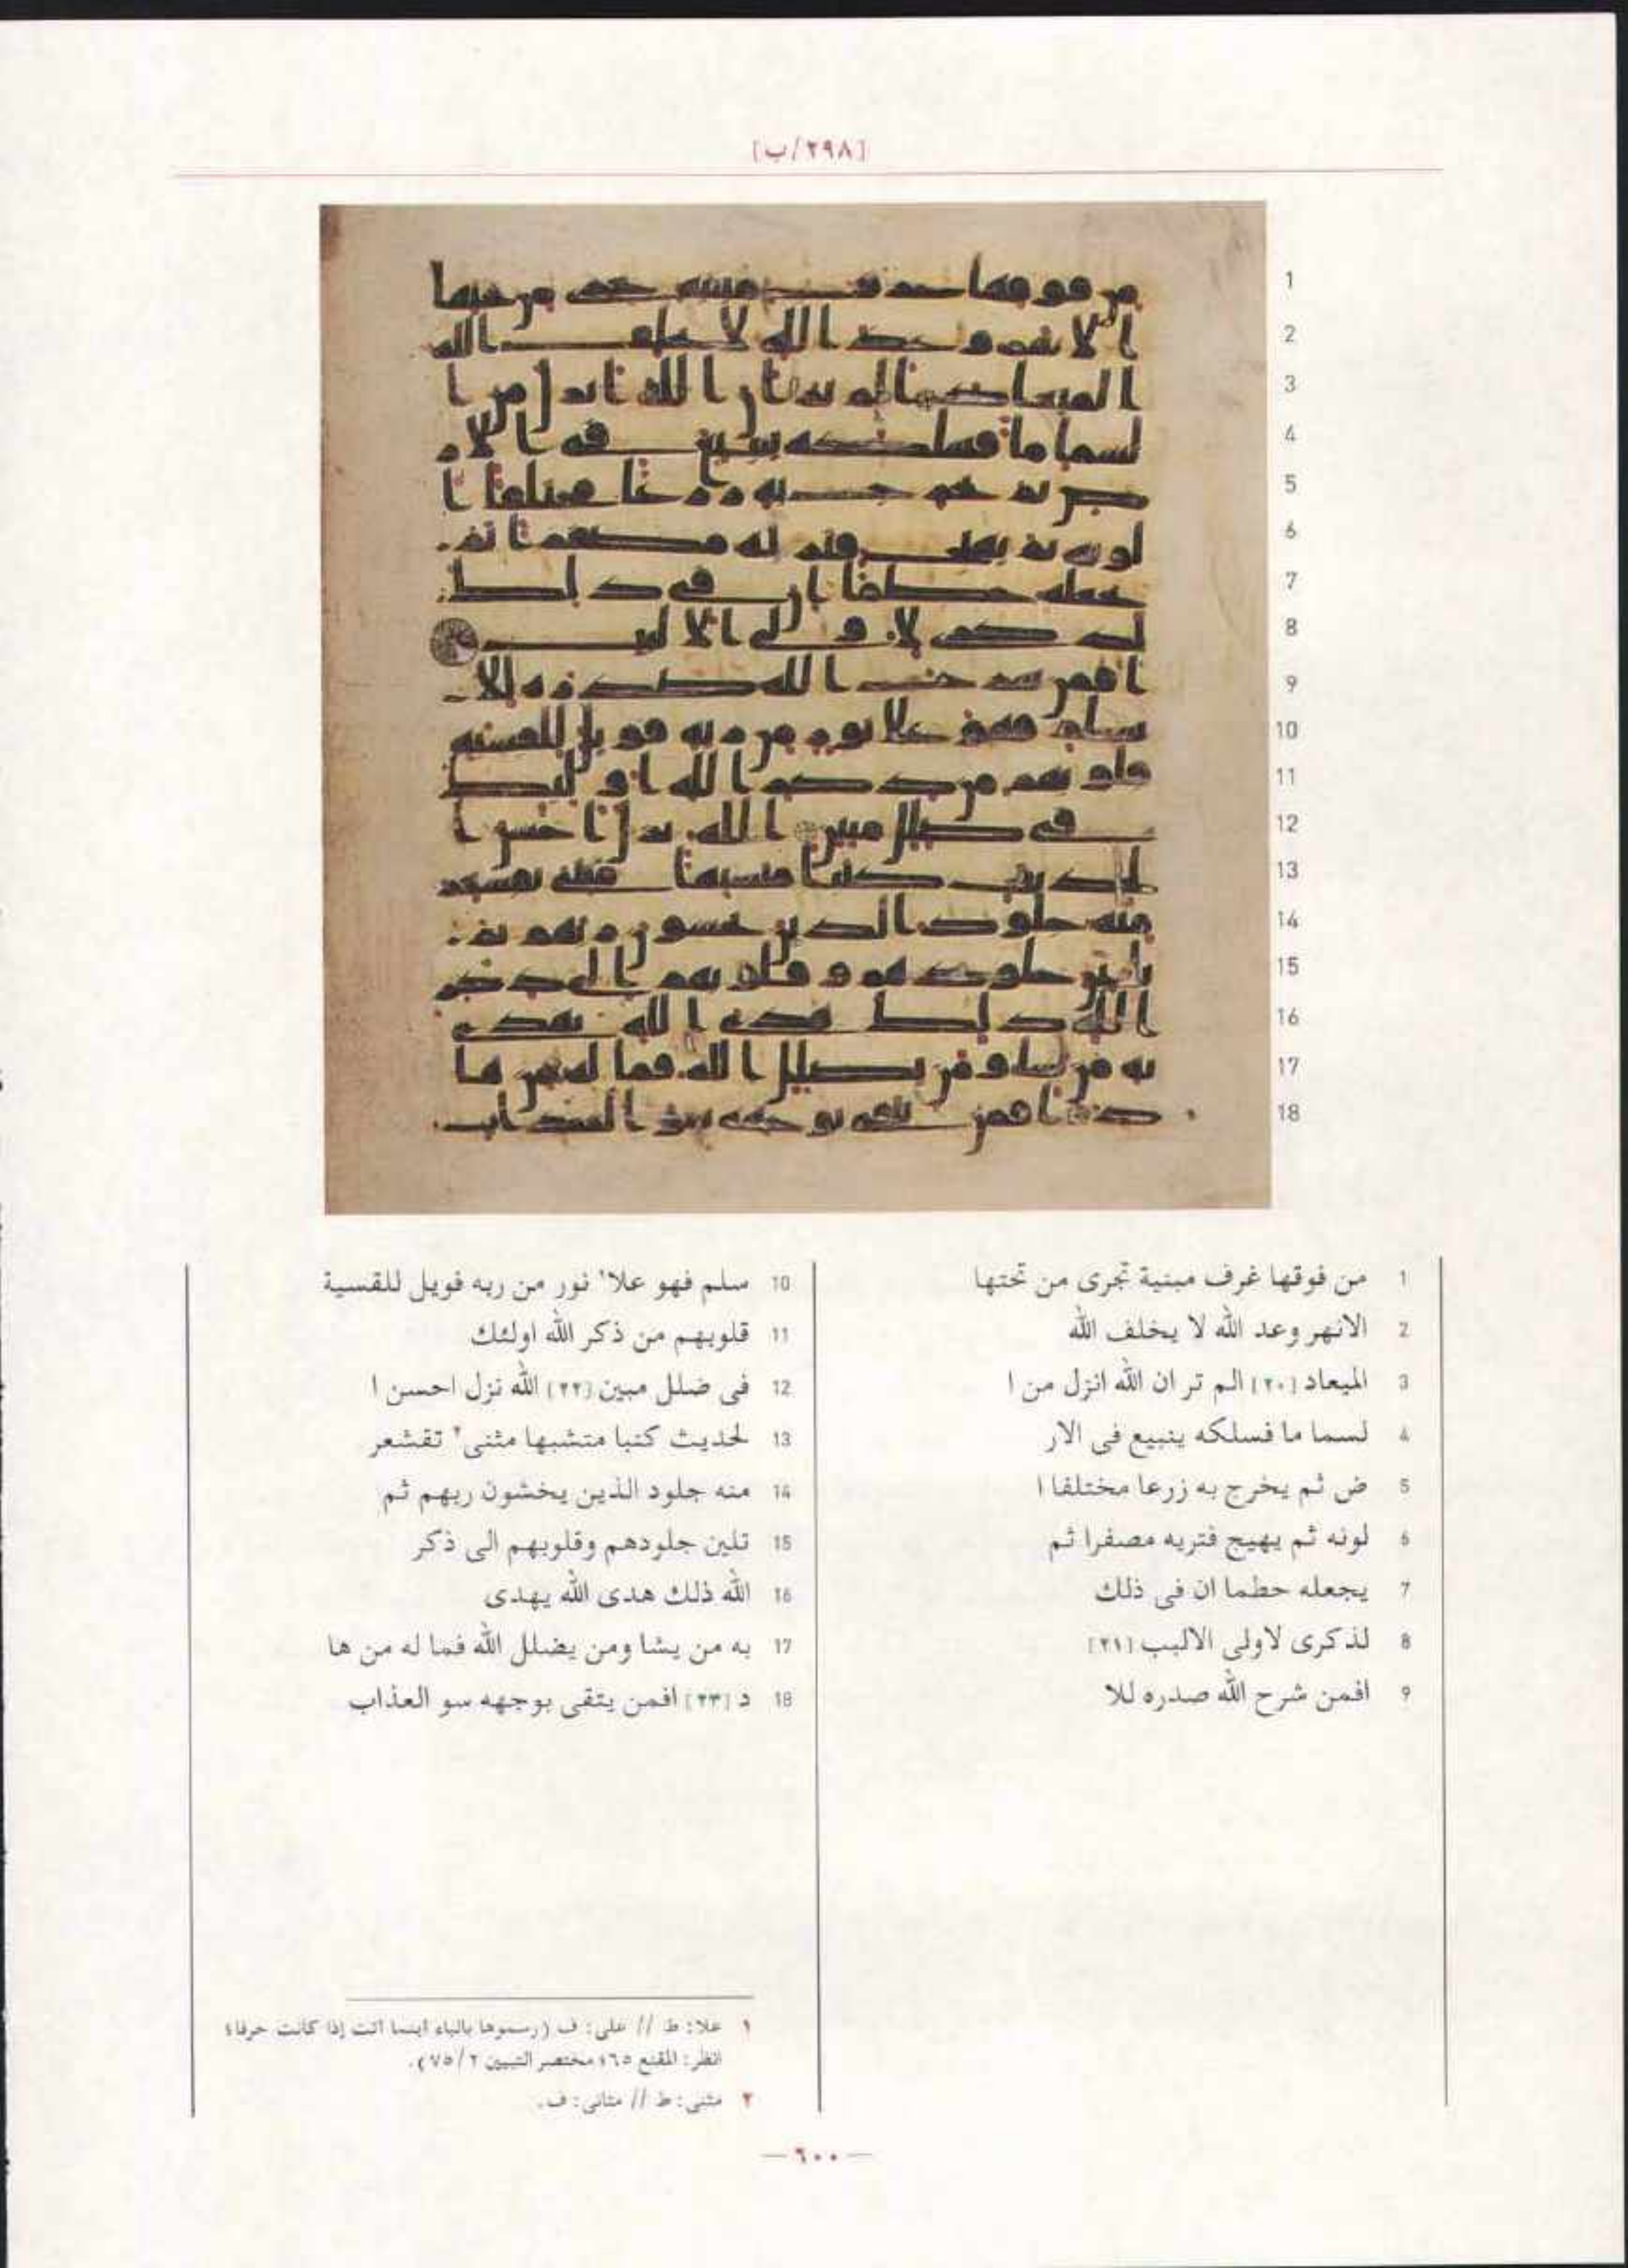 [٢٩٨/ب]
1 من فوقها غرف مبنية تجرى من تحتها
2 الانهر وعد الله لا يخلف الله
3 الميعاد [٢٠] الم تر ان الله انزل من ا
4 لسما ما فسلكه ينبيع فى الار
5 ض ثم يخرج به زرعا مختلفا ا
6 لونه ثم يهيج فتريه مصفرا ثم
7 يجعله حطما ان فى ذلك
8 لذكرى لاولى الالبب [٢١]
9 افمن شرح الله صدره للا
10 سلم فهو علا١ نور من ربه فويل للقسية
11 قلوبهم من ذكر الله اولئك
12 فى ضلل مبين [٢٢] الله نزل احسن ا
13 لحديث كتبا متشبها مثنى٢ تقشعر
14 منه جلود الذين يخشون ربهم ثم
15 تلين جلودهم وقلوبهم الى ذكر
16 الله ذلك هدى الله يهدى
17 به من يشا ومن يضلل الله فما له من ها
18 د [٢٣] افمن يتقى بوجهه سو العذاب
١ علا: ط // على: ف (رسموها بالياء اينما اتت إذا كانت حرفا؛
انظر: المقنع ٦٥؛ مختصر التبيين ٢/ ٧٥).
٢ مثنى: ط // مثانى: ف.
— ٦٠٠ —